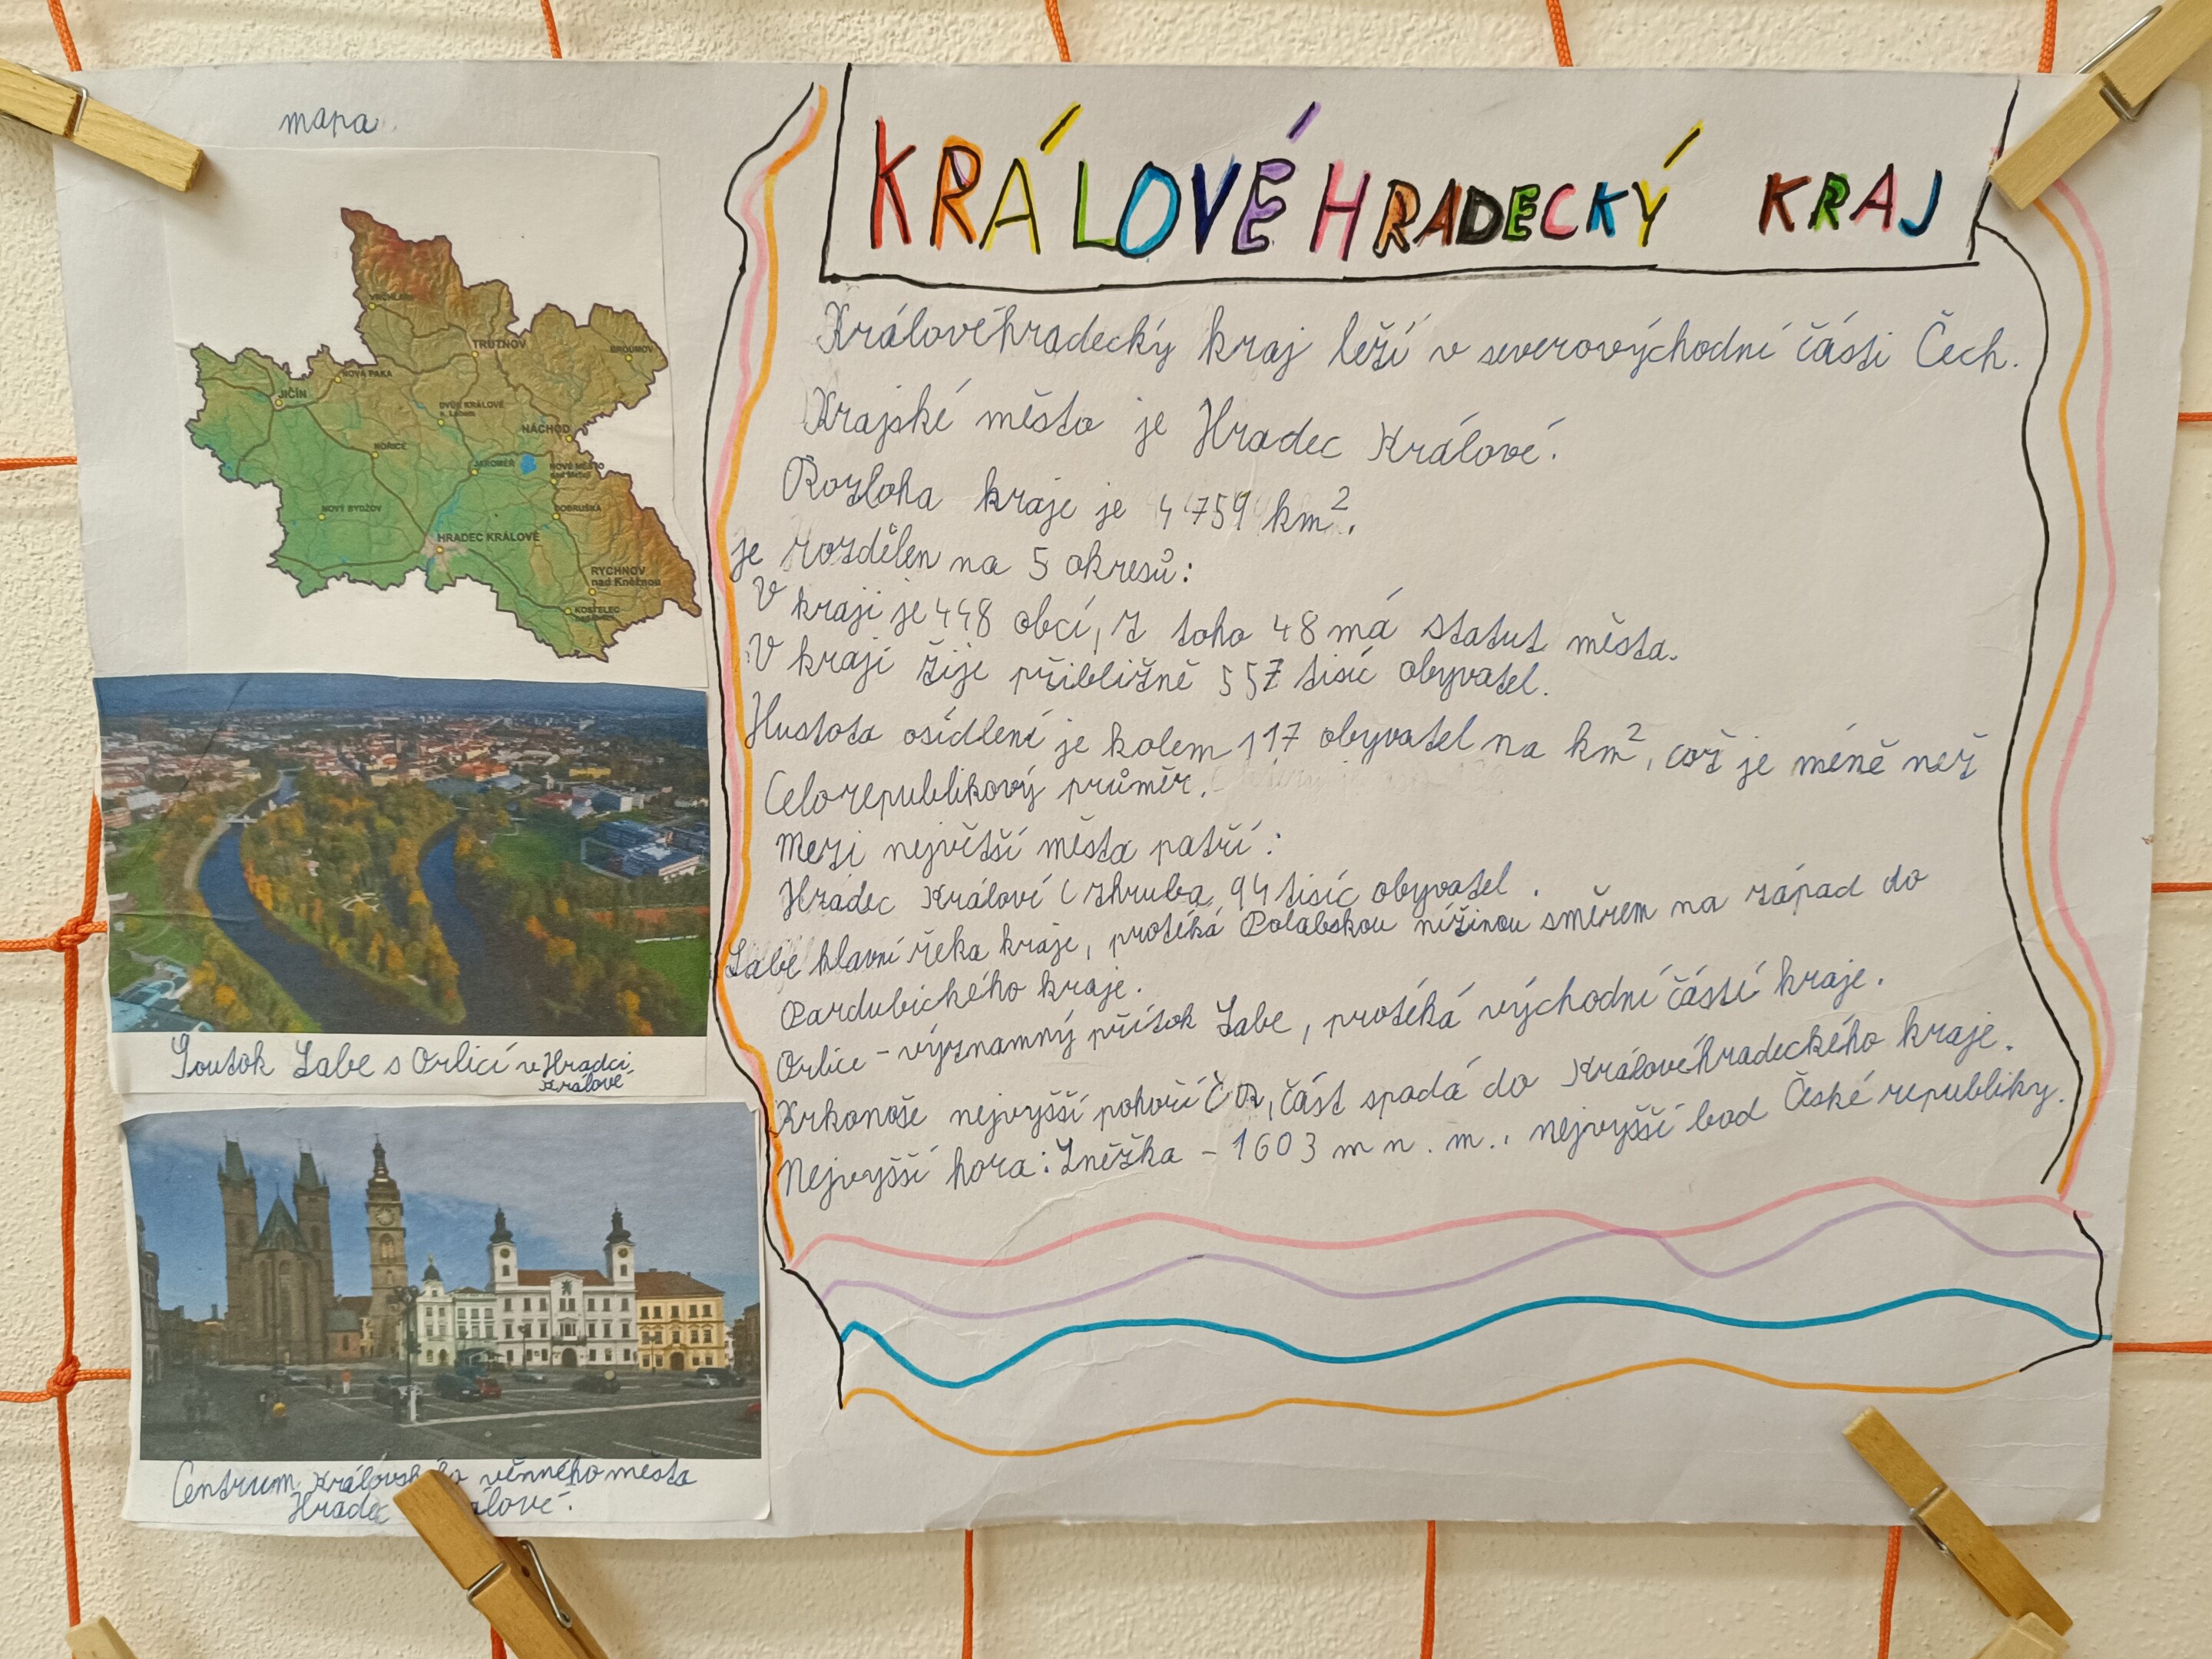 mapa
VRCHLABÍ
TRUTNOV
BROUMOV
NOVÁ PAKA
JIČÍN
DVŮR KRÁLOVÉ
n. Labem
NÁCHOD
HOŘICE
JAROMĚŘ
NOVÉ MĚSTO
nad Metují
NOVÝ BYDŽOV
DOBRUŠKA
HRADEC KRÁLOVÉ
RYCHNOV
nad Kněžnou
KOSTELEC
Soutok Labe s Orlicí v Hradci
Králové
Centrum věnného města
Hradec
KRÁLOVÉHRADECKÝ KRAJ
Královéhradecký kraj leží v severovýchodní části Čech.
Krajské město je Hradec Králové.
Rozloha kraje je 4 759 km².
je rozdělen na 5 okresů:
V kraji je 448 obcí, z toho 48 má statut města.
V kraji žije přibližně 557 tisíc obyvatel.
Hustota osídlení je kolem 117 obyvatel na km², což je méně než
Celorepublikový průměr.
Mezi největší města patří:
Hradec Králové (zhruba 94 tisíc obyvatel.
Labe hlavní řeka kraje, protéká Polabskou nížinou směrem na západ do
Pardubického kraje.
Orlice - významný přítok Labe, protéká východní částí kraje.
Krkonoše nejvyšší pohoří ČR, část spadá do Královéhradeckého kraje.
Nejvyšší hora: Sněžka - 1603 m n. m., nejvyšší bod České republiky.